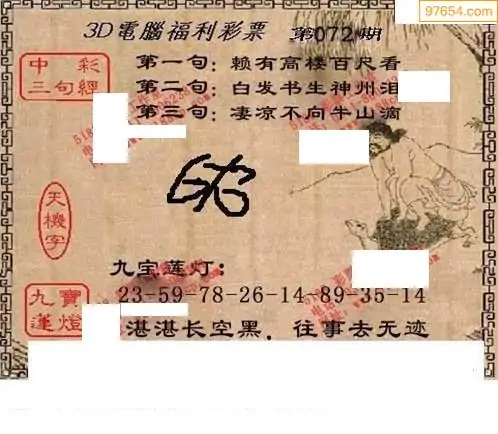 97654.com
3D電腦福利彩票 第072期
中彩
三句經
第一句：赖有高楼百尺看
第二句：白发书生神州泪
第三句：凄凉不向牛山滴
天機字
九宝莲灯：
九寶
蓮燈
23-59-78-26-14-89-35-14
湛湛长空黑．往事去无迹